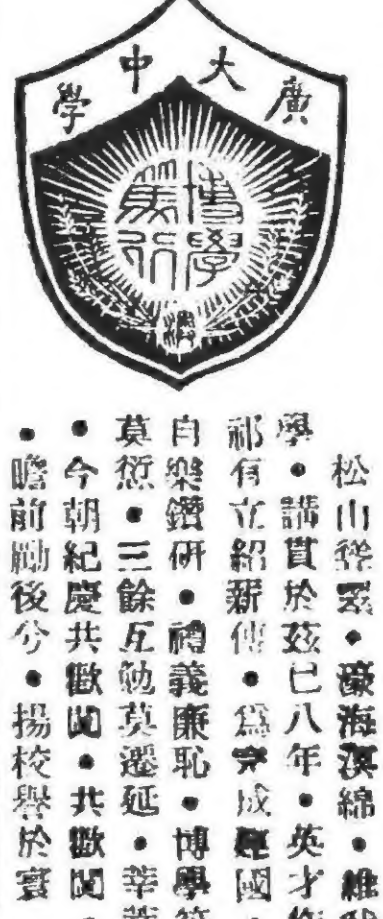 廣大中學
博學
篤行
松山聳翠•濠海綿•維
學•講貫於茲已八年•英才
祁有立紹薪傳•為完成建國
自樂鑽研•禮義廉恥•博學
莫愆•三餘互勉莫遷延•莘
•今朝紀慶共歡闐•共歡闐•
•瞻前勵後兮•揚校譽於寰